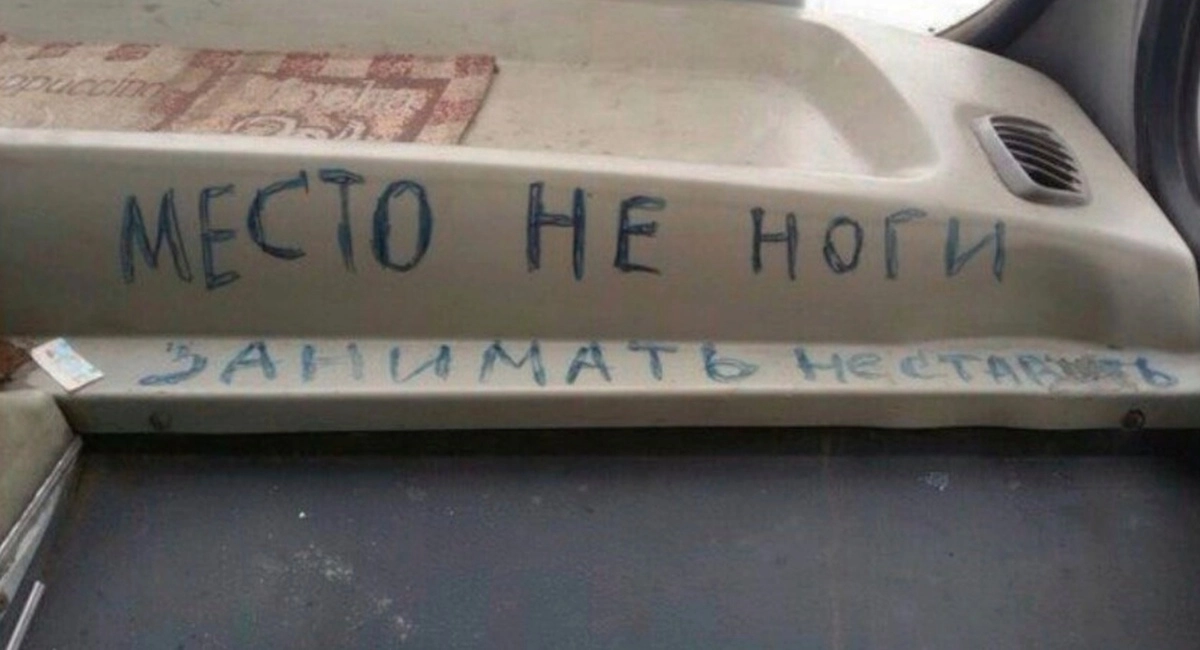 cappuccino
МЕСТО НЕ НОГИ
ЗАНИМАТЬ НЕ СТАВИТЬ